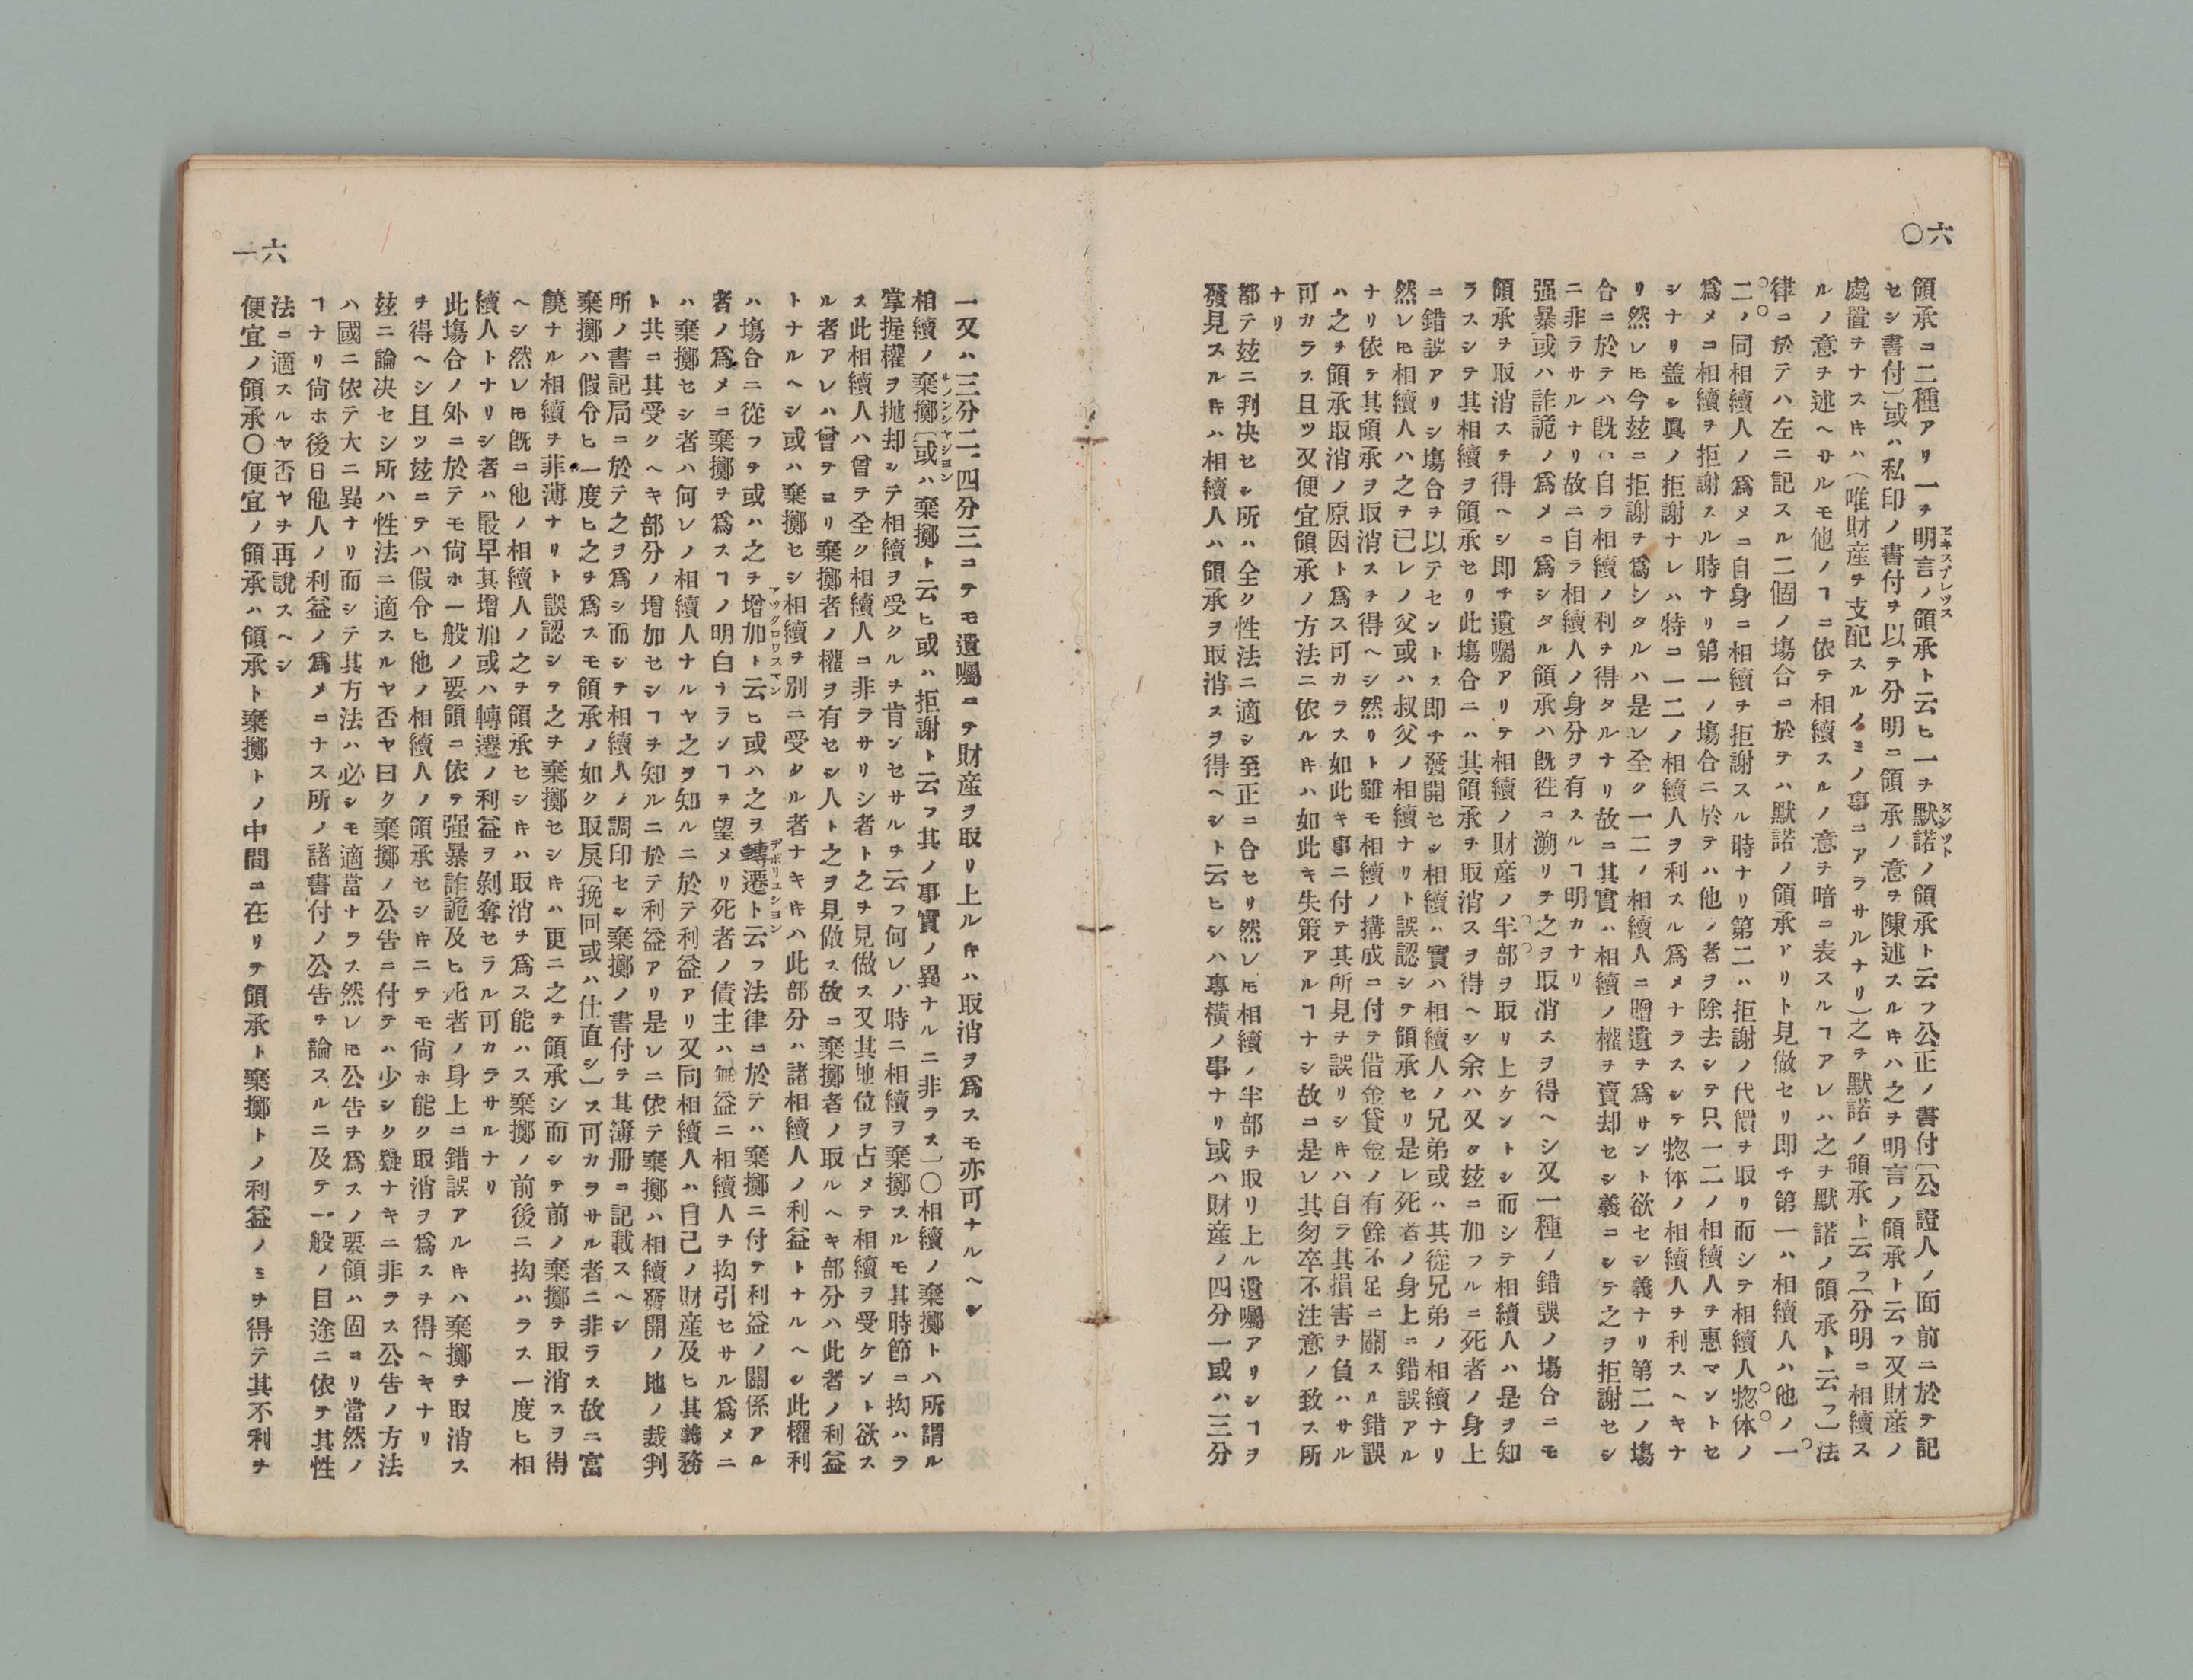 六〇
領承ニ二種アリ一ヲ明言ノ領承ト云ヒ一ヲ默諾ノ領承ト云フ公正ノ書付〔公證人ノ面前ニ於テ記
エキスプレツス
タシツト
セシ書付〕或ハ私印ノ書付ヲ以テ分明ニ領承ノ意ヲ陳述スルキハ之ヲ明言ノ領承ト云フ又財産ノ
處置ヲナスキハ（唯財産ヲ支配スルノミノ事ニアラサルナリ）之ヲ默諾ノ領承ト云フ〔分明ニ相續ス
ルノ意ヲ述ヘサルモ他ノヿニ依テ相續スルノ意ヲ暗ニ表スルヿアレハ之ヲ默諾ノ領承ト云フ〕法
律ニ於テハ左ニ記スル二個ノ塲合ニ於テハ默諾ノ領承アリト見做セリ即チ第一ハ相續人ハ他ノ一
二ノ同相續人ノ爲メニ自身ニ相續ヲ拒謝スル時ナリ第二ハ拒謝ノ代償ヲ取リ而シテ相續人惣体ノ
爲メニ相續ヲ拒謝スル時ナリ第一ノ塲合ニ於テハ他ノ者ヲ除去シテ只一二ノ相續人ヲ惠マントセ
シナリ盖シ眞ノ拒謝ナレハ特ニ一二ノ相續人ヲ利スル爲メナラスシテ惣体ノ相續人ヲ利スヘキナ
リ然レ𪜈今玆ニ拒謝ヲ爲シタルハ是レ全ク一二ノ相續人ニ贈遺ヲ爲サント欲セシ義ナリ第二ノ塲
合ニ於テハ既ニ自ラ相續ノ利ヲ得タルナリ故ニ其實ハ相續ノ權ヲ賣却セシ義ニシテ之ヲ拒謝セシ
ニ非ラサルナリ故ニ自ラ相續人ノ身分ヲ有スルヿ明カナリ
强暴或ハ詐詭ノ爲メニ爲シタル領承ハ既徃ニ溯リテ之ヲ取消スヲ得ヘシ又一種ノ錯誤ノ塲合ニモ
領承ヲ取消スヲ得ヘシ即チ遺囑アリテ相續ノ財産ノ半部ヲ取リ上ケントシ而シテ相續人ハ是ヲ知
ラスシテ其相續ヲ領承セリ此塲合ニハ其領承ヲ取消スヲ得ヘシ余ハ又タ玆ニ加フルニ死者ノ身上
ニ錯誤アリシ塲合ヲ以テセントス即チ發開セシ相續ハ實ハ相續人ノ兄弟或ハ其從兄弟ノ相續ナリ
然レ𪜈相續人ハ之ヲ己レノ父或ハ叔父ノ相續ナリト誤認シテ領承セリ是レ死者ノ身上ニ錯誤アル
ナリ依テ其領承ヲ取消スヲ得ヘシ然リト雖モ相續ノ搆成ニ付テ借金貸金ノ有餘不足ニ關スル錯誤
ハ之ヲ領承取消ノ原因ト爲ス可カラス如此キ事ニ付テ其所見ヲ誤リシキハ自ラ其損害ヲ負ハサル
可カラス且ツ又便宜領承ノ方法ニ依ルキハ如此キ失策アルヿナシ故ニ是レ其匆卒不注意ノ致ス所
ナリ
都テ玆ニ判决セシ所ハ全ク性法ニ適シ至正ニ合セリ然レ𪜈相續ノ半部ヲ取リ上ル遺囑アリシヿヲ
發見スルキハ相續人ハ領承ヲ取消スヲ得ヘシト云ヒシハ專橫ノ事ナリ或ハ財産ノ四分一或ハ三分
六一
一又ハ三分二、四分三ニテモ遺囑ニテ財産ヲ取リ上ルキハ取消ヲ爲スモ亦可ナルヘシ
相續ノ棄擲〔或ハ棄擲ト云ヒ或ハ拒謝ト云フ其ノ事實ノ異ナルニ非ラス〕〇相續ノ棄擲トハ所謂ル
ルノンシヤシヨン
掌握權ヲ抛却シテ相續ヲ受クルヲ肯ンセサルヲ云フ何レノ時ニ相續ヲ棄擲スルモ其時節ニ抅ハラ
ス此相續人ハ曾テ全ク相續人ニ非ラサリシ者ト之ヲ見做ス又其地位ヲ占メテ相續ヲ受ケント欲ス
ル者アレハ曾テヨリ棄擲者ノ權ヲ有セシ人ト之ヲ見做ス故ニ棄擲者ノ取ルヘキ部分ハ此者ノ利益
トナルヘシ或ハ棄擲セシ相續ヲ別ニ受クル者ナキキハ此部分ハ諸相續人ノ利益トナルヘシ此權利
ハ塲合ニ從フテ或ハ之ヲ增加ト云ヒ或ハ之ヲ轉遷ト云フ法律ニ於テハ棄擲ニ付テ利益ノ關係アル
アツクロワスマン
デボリユシヨン
者ノ爲メニ棄擲ヲ爲スヿノ明白ナランヿヲ望メリ死者ノ債主ハ無益ニ相續人ヲ抅引セサル爲メニ
ハ棄擲セシ者ハ何レノ相續人ナルヤ之ヲ知ルニ於テ利益アリ又同相續人ハ自己ノ財産及ヒ其義務
ト共ニ其受クヘキ部分ノ增加セシヿヲ知ルニ於テ利益アリ是レニ依テ棄擲ハ相續發開ノ地ノ裁判
所ノ書記局ニ於テ之ヲ爲シ而シテ相續人ノ調印セシ棄擲ノ書付ヲ其簿册ニ記載スヘシ
棄擲ハ假令ヒ一度ヒ之ヲ爲スモ領承ノ如ク取戾〔挽回或ハ仕直シ〕ス可カラサル者ニ非ラス故ニ富
饒ナル相續ヲ菲薄ナリト誤認シテ之ヲ棄擲セシキハ更ニ之ヲ領承シ而シテ前ノ棄擲ヲ取消スヲ得
ヘシ然レ𪜈既ニ他ノ相續人ノ之ヲ領承セシキハ取消ヲ爲ス能ハス棄擲ノ前後ニ抅ハラス一度ヒ相
續人トナリシ者ハ最早其增加或ハ轉遷ノ利益ヲ剝奪セラル可カラサルナリ
此塲合ノ外ニ於テモ尙ホ一般ノ要領ニ依テ强暴詐詭及ヒ死者ノ身上ニ錯誤アルキハ棄擲ヲ取消ス
ヲ得ヘシ且ツ玆ニテハ假令ヒ他ノ相續人ノ領承セシキニテモ尙ホ能ク取消ヲ爲スヲ得ヘキナリ
玆ニ論决セシ所ハ性法ニ適スルヤ否ヤ曰ク棄擲ノ公告ニ付テハ少シク疑ナキニ非ラス公告ノ方法
ハ國ニ依テ大ニ異ナリ而シテ其方法ハ必シモ適當ナラス然レ𪜈公告ヲ爲スノ要領ハ固ヨリ當然ノ
ヿナリ尙ホ後日他人ノ利益ノ爲メニナス所ノ諸書付ノ公告ヲ論スルニ及テ一般ノ目途ニ依テ其性
法ニ適スルヤ否ヤヲ再說スヘシ
便宜ノ領承〇便宜ノ領承ハ領承ト棄擲トノ中間ニ在リテ領承ト棄擲トノ利益ノミヲ得テ其不利ヲ